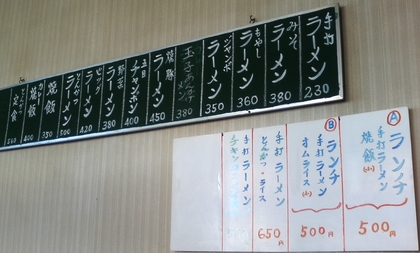 手打ラーメン 230
みそラーメン 380
もやしラーメン 360
ジャンボラーメン 350
玉子あんかけ 380
焼豚ラーメン 450
五目チャンポン 400
野菜ラーメン 380
ビックラーメン 420
とんかつラーメン 500
焼飯 350
焼飯 400
定食
Ⓐランチ
手打ラーメン
焼飯(小)
500円
Ⓑランチ
手打ラーメン
オムライス(小)
500円
手打ラーメン
とんかつ・ライス
650円
手打ラーメン